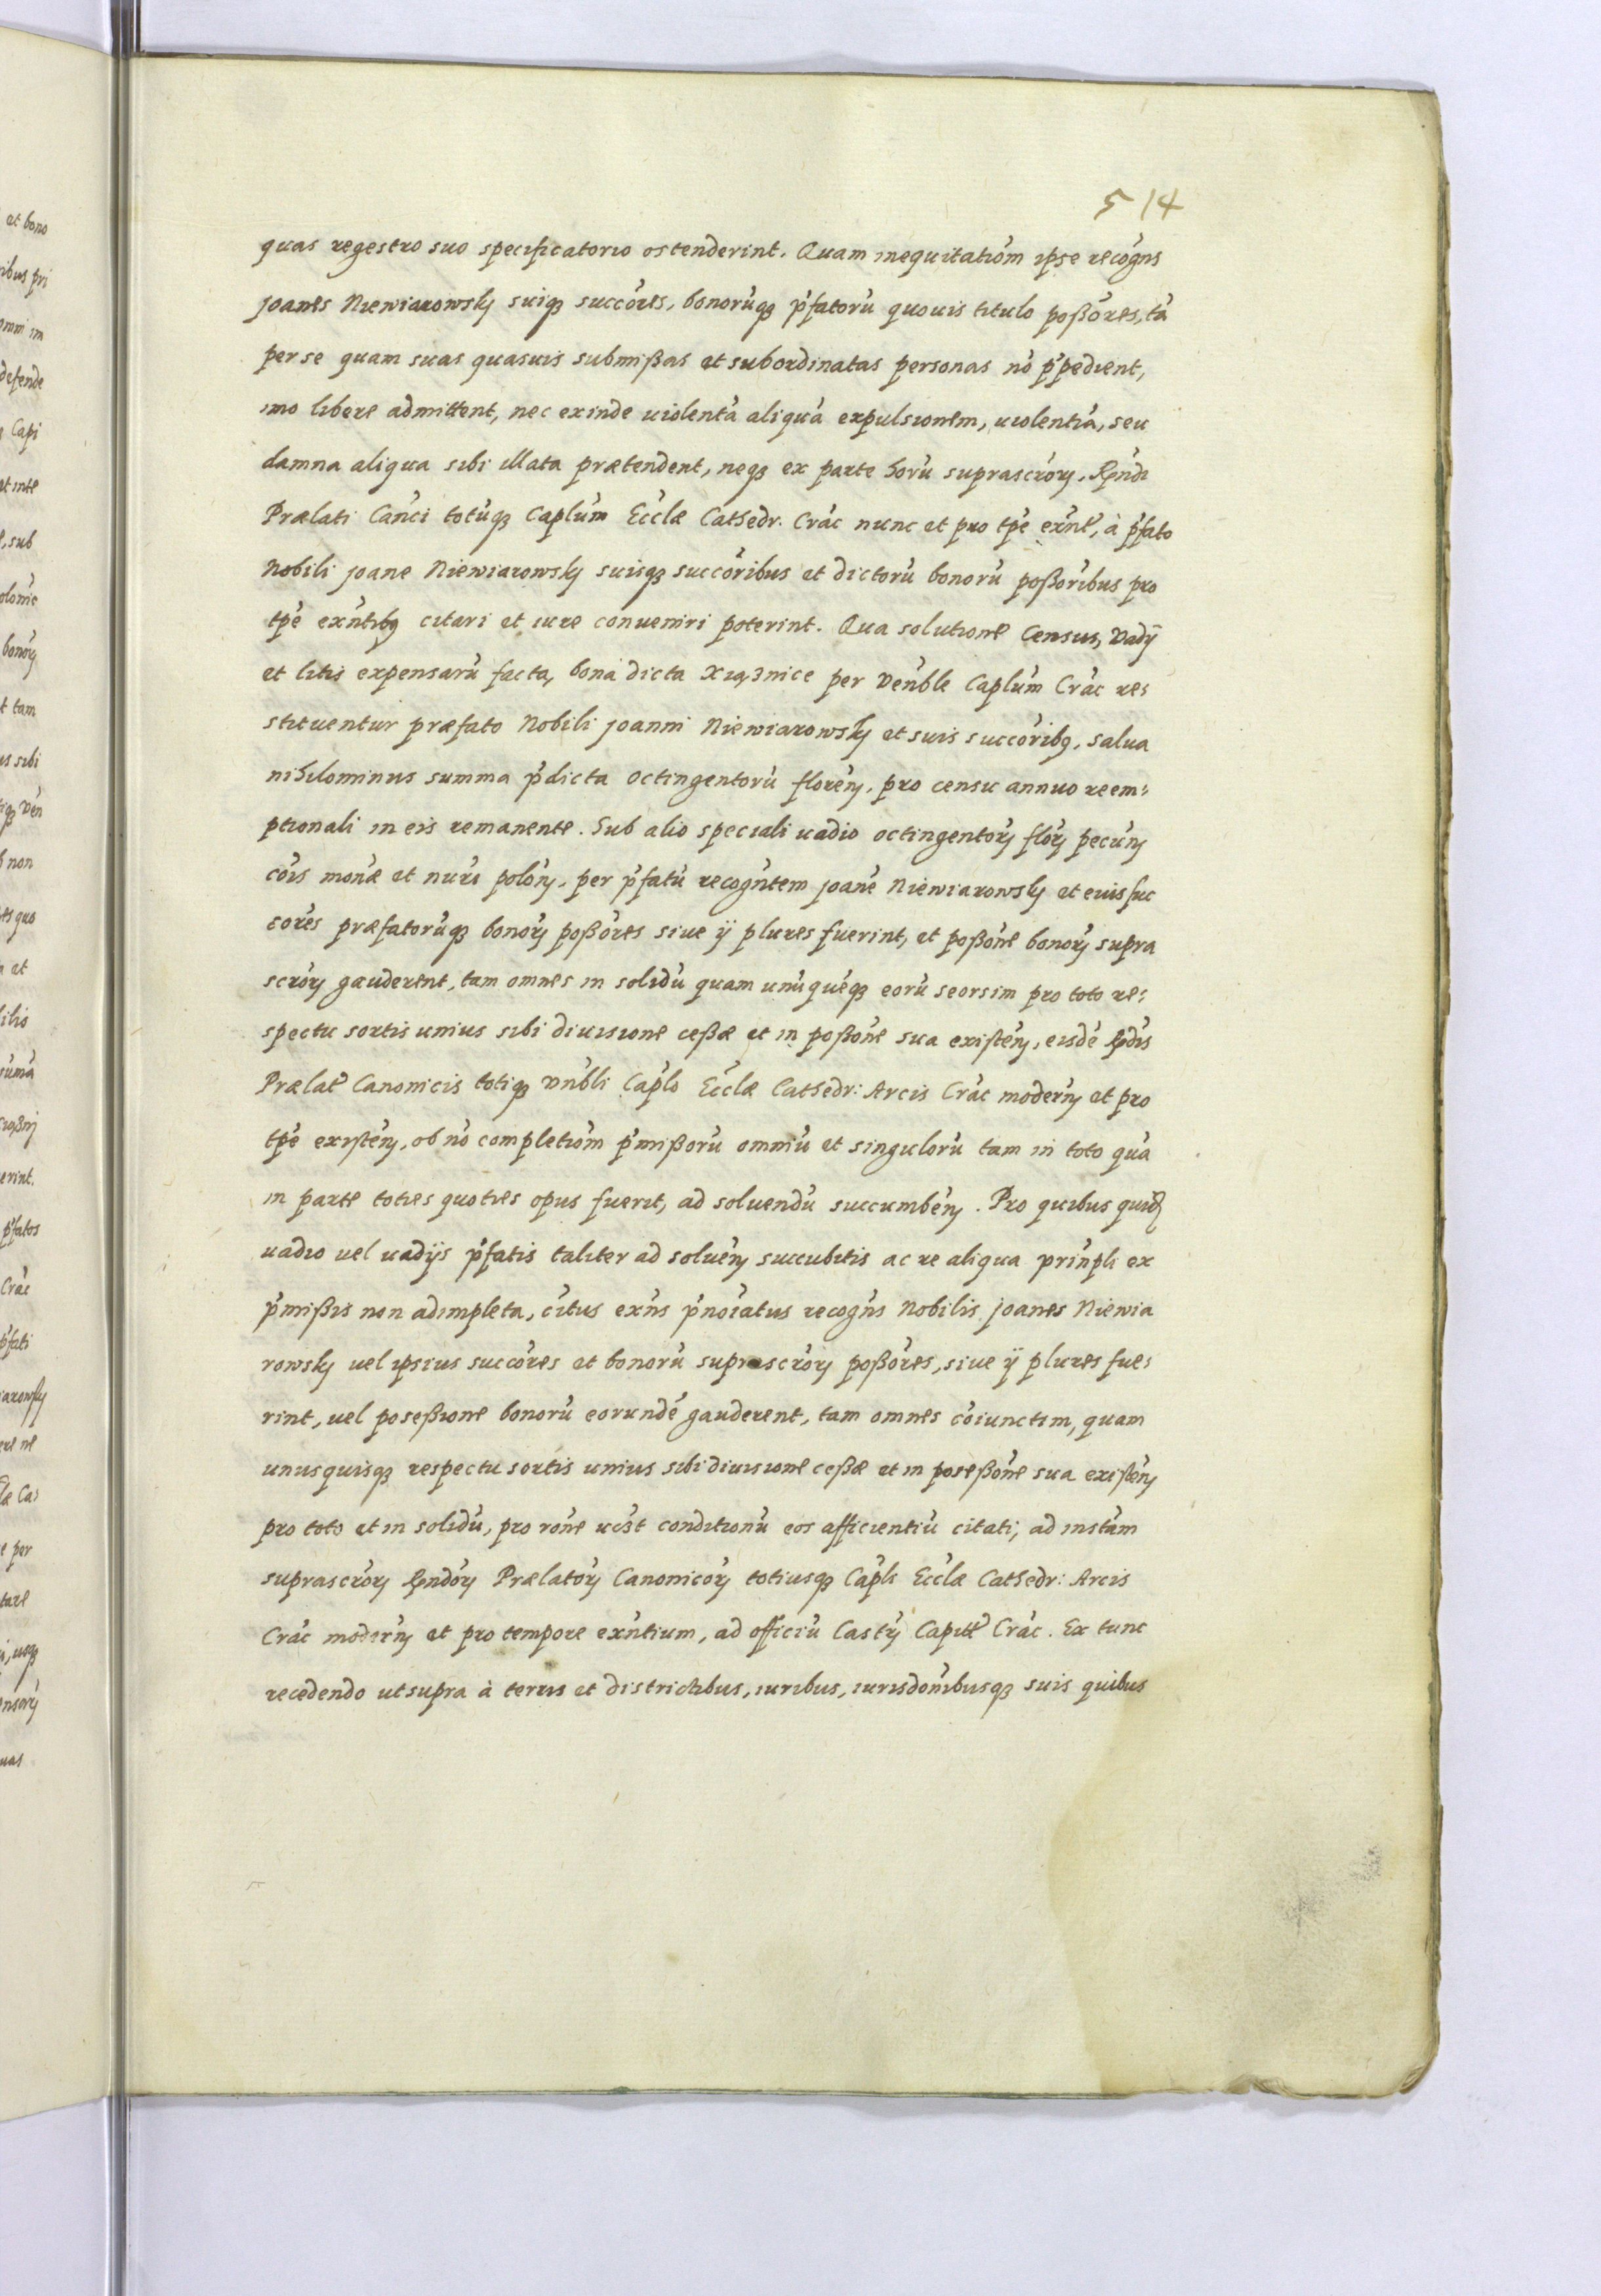 514
quas regestro suo specificatorio ostenderint. Quam inequitatiõm ipse recogñs
Joanes Niewiarowsky suiqʒ succõres, bonorũqʒ p̃fatorũ quouis titulo poßõres, tã
per se quam suas quasuis submißas et subordinatas personas nõ p̃pedient,
imo libere admittent, nec exinde uiolentã aliquã expulsionem, uiolentiã, seu
damna aliqua sibi illata prætendent, neqʒ ex parte horũ suprascrõꝝ. Rñdi
Prælati Canci totũqʒ Caplũm Ecclæ Cathedr. Crac nunc et pro tp̃e exñt, à p̃fato
Nobili Joane Niewiarowsky suisqʒ succõribus et dictorũ bonorũ poßõribus pro
tp̃e exñtibꝫ citari et iure conueniri poterint. Qua solutione Census, vadÿ
et litis expensarũ facta, bona dicta Xiąznice per venble Caplũm Crac re:
stituentur præfato Nobili Joanni Niewiarowsky et suis succõribꝫ, salua
nihilominus summa p̃dicta octingentorũ florẽꝝ, pro censu annuo reem:
ptionali in eis remanente. Sub alio speciali uadio octingentoꝝ floꝝ pecũꝝ
cõis monæ et nuri polõꝝ, per p̃fatũ recogñtem Joanẽ Niewiarowsky et eius suc
cores præfatorũqʒ bonoꝝ poßõres siue ÿ plures fuerint, et poßõne bonoꝝ supra
scrõꝝ gauderent, tam omnes in solidũ quam unũquẽqʒ eorũ seorsim pro toto re:
spectu sortis unius sibi diuisione ceßæ et in poßõne sua existẽꝝ, eisdẽ Rdis
Prælat Canonicis totiqʒ vñbli Caplo Ecclæ Cathedr: Arcis Crac moderꝝ et pro
tp̃e existẽꝝ, ob nõ completiõm p̃mißorũ omniũ et singulorũ tam in toto quã
in parte toties quoties opus fuerit, ad soluendũ succumbẽꝝ. Pro quibus quid
uadio uel uadijs p̃fatis taliter ad soluẽꝝ succubitis ac re aliqua prinpli ex
p̃mißis non adimpleta, citus exñs p̃noiatus recogñs Nobilis Joanes Niewia
rowsky uel ipsius succõres et bonorũ suprascrõꝝ poßõres, siue ÿ plures fue:
rint, uel poseßione bonorũ eorundẽ gauderent, tam omnes cõiunctim, quam
unusquisqʒ respectu sortis unius sibi diuisione ceßæ et in poseßõne sua existẽꝝ
pro toto et in solidũ, pro rõne ucst conditionũ eos afficientiũ citati, ad instãm
suprascrõꝝ Rndoꝝ Prælatoꝝ Canonicoꝝ totiusqʒ Capli Ecclæ Cathedr: Arcis
Crac moderꝝ et pro tempore exñtium, ad officiũ Castꝝ Capitt Crac. Ex tunc
recedendo ut supra à terris et districtibus, iuribus, iurisdonibusqʒ suis quibus